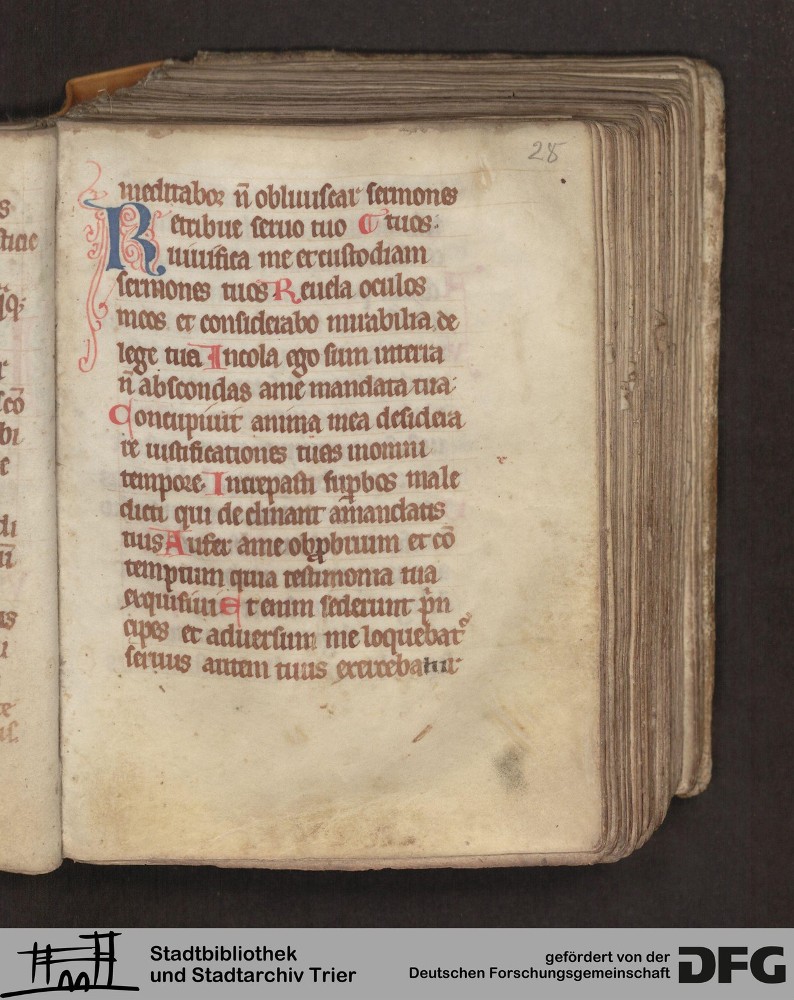 28
meditabor n̄ obliuiscar sermones
Retribue seruo tuo ⸿ tuos.
uiuifica me et custodiam
sermones tuos Reuela oculos
meos et considerabo mirabilia de
lege tua Incola ego sum in terra
n̄ abscondas a me mandata tua
Concupiuit anima mea desidera
re iustificationes tuas in omni
tempore Increpasti suꝑbos male
dicti qui declinant a mandatis
tuis Aufer a me obꝓbrium et cō
temptum quia testimonia tua
exquisiui Etenim sederunt p̄n
cipes et aduersum me loquebat᷑
seruus autem tuus exercebatur
Stadtbibliothek
und Stadtarchiv Trier
gefördert von der
Deutschen Forschungsgemeinschaft
DFG